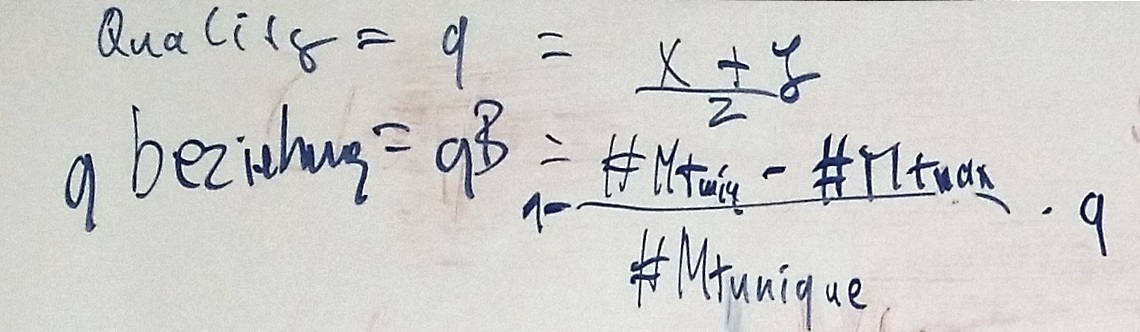 Quality = q = (x + y) / 2
q beziehung = qB = 1 - (#Mtmin - #Mtmax) / #Mtunique · q